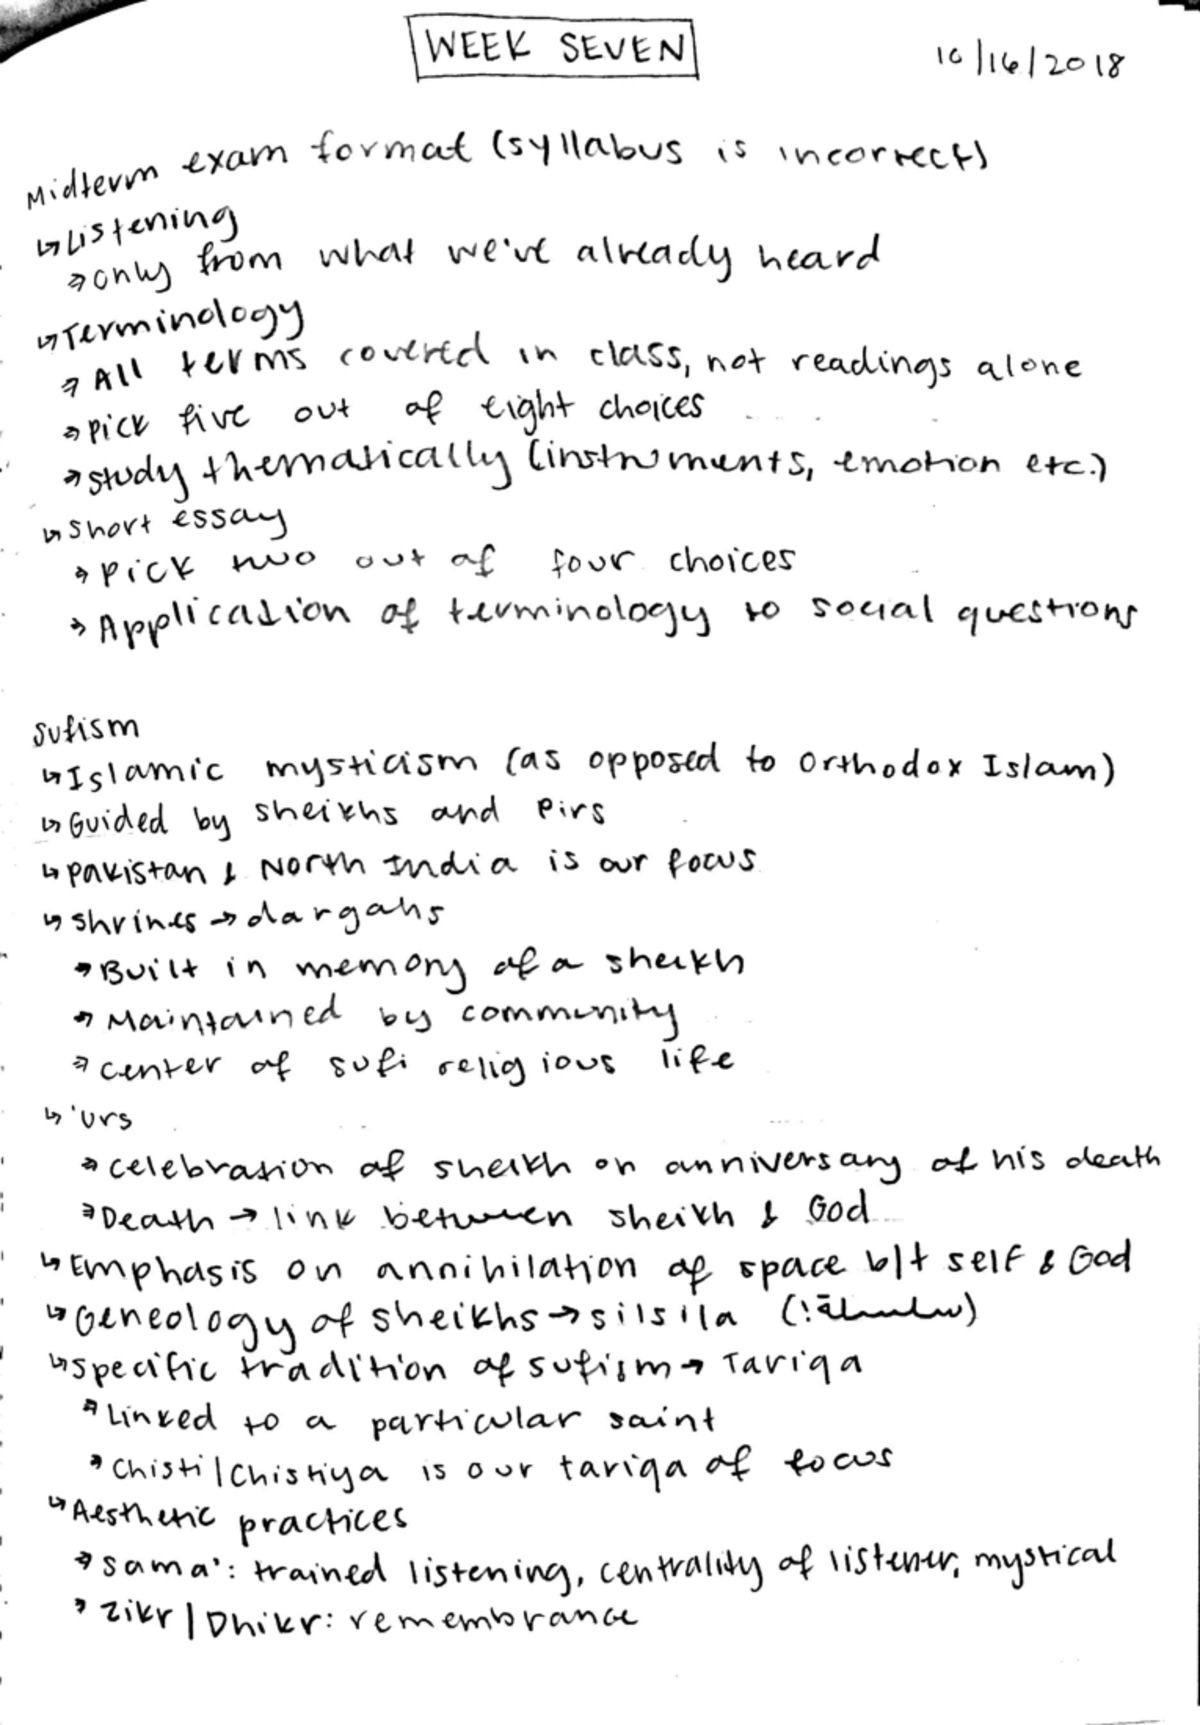 WEEK SEVEN
10/16/2018
Midterm exam format (syllabus is incorrect)
↳ Listening
→ only from what we've already heard
↳ Terminology
→ All terms covered in class, not readings alone
→ Pick five out of eight choices
→ study thematically (instruments, emotion etc.)
↳ short essay
→ Pick two out of four choices
→ Application of terminology to social questions
Sufism
↳ Islamic mysticism (as opposed to Orthodox Islam)
↳ Guided by sheikhs and Pirs
↳ Pakistan & North India is our focus
↳ Shrines → dargahs
→ Built in memory of a sheikh
→ Maintained by community
→ center of sufi religious life
↳ 'Urs
→ celebration of sheikh on anniversary of his death
→ Death → link between sheikh & God
↳ Emphasis on annihilation of space b/t self & God
↳ Geneology of sheikhs → silsila
↳ specific tradition of sufism → Tariqa
→ Linked to a particular saint
→ Chisti/Chistiya is our tariqa of focus
↳ Aesthetic practices
→ Sama': trained listening, centrality of listener, mystical
→ Zikr/Dhikr: remembrance